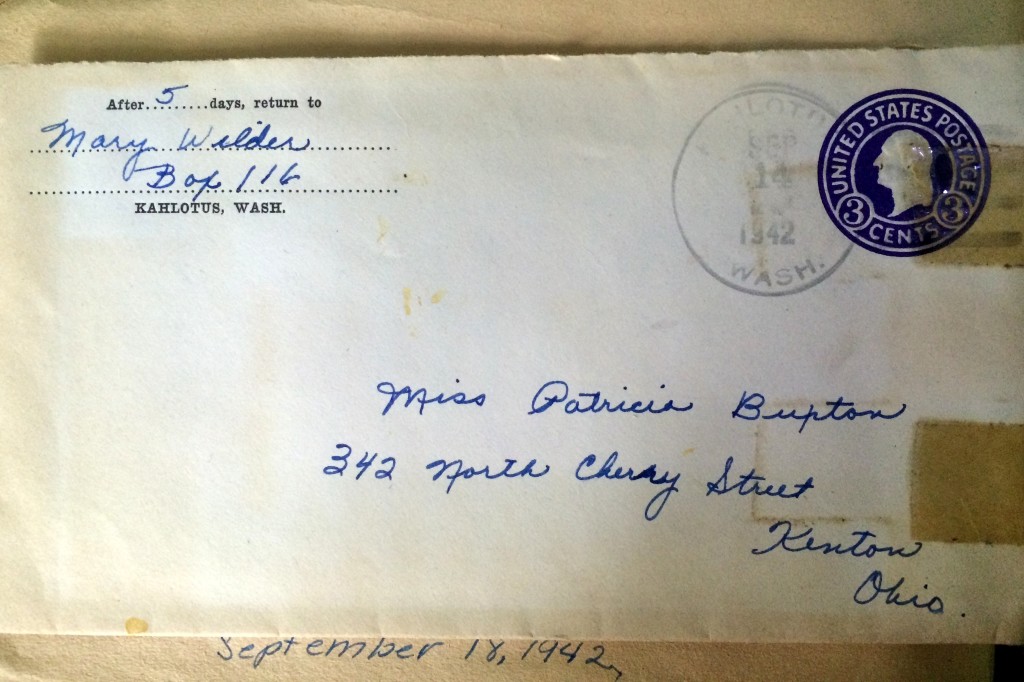 After 5 days, return to
Mary Wilder
Box 116
KAHLOTUS, WASH.
SEP
14
1942
WASH.
UNITED STATES POSTAGE
3 CENTS 3
Miss Patricia Bupton
342 North Cherry Street
Kenton
Ohio.
September 18, 1942